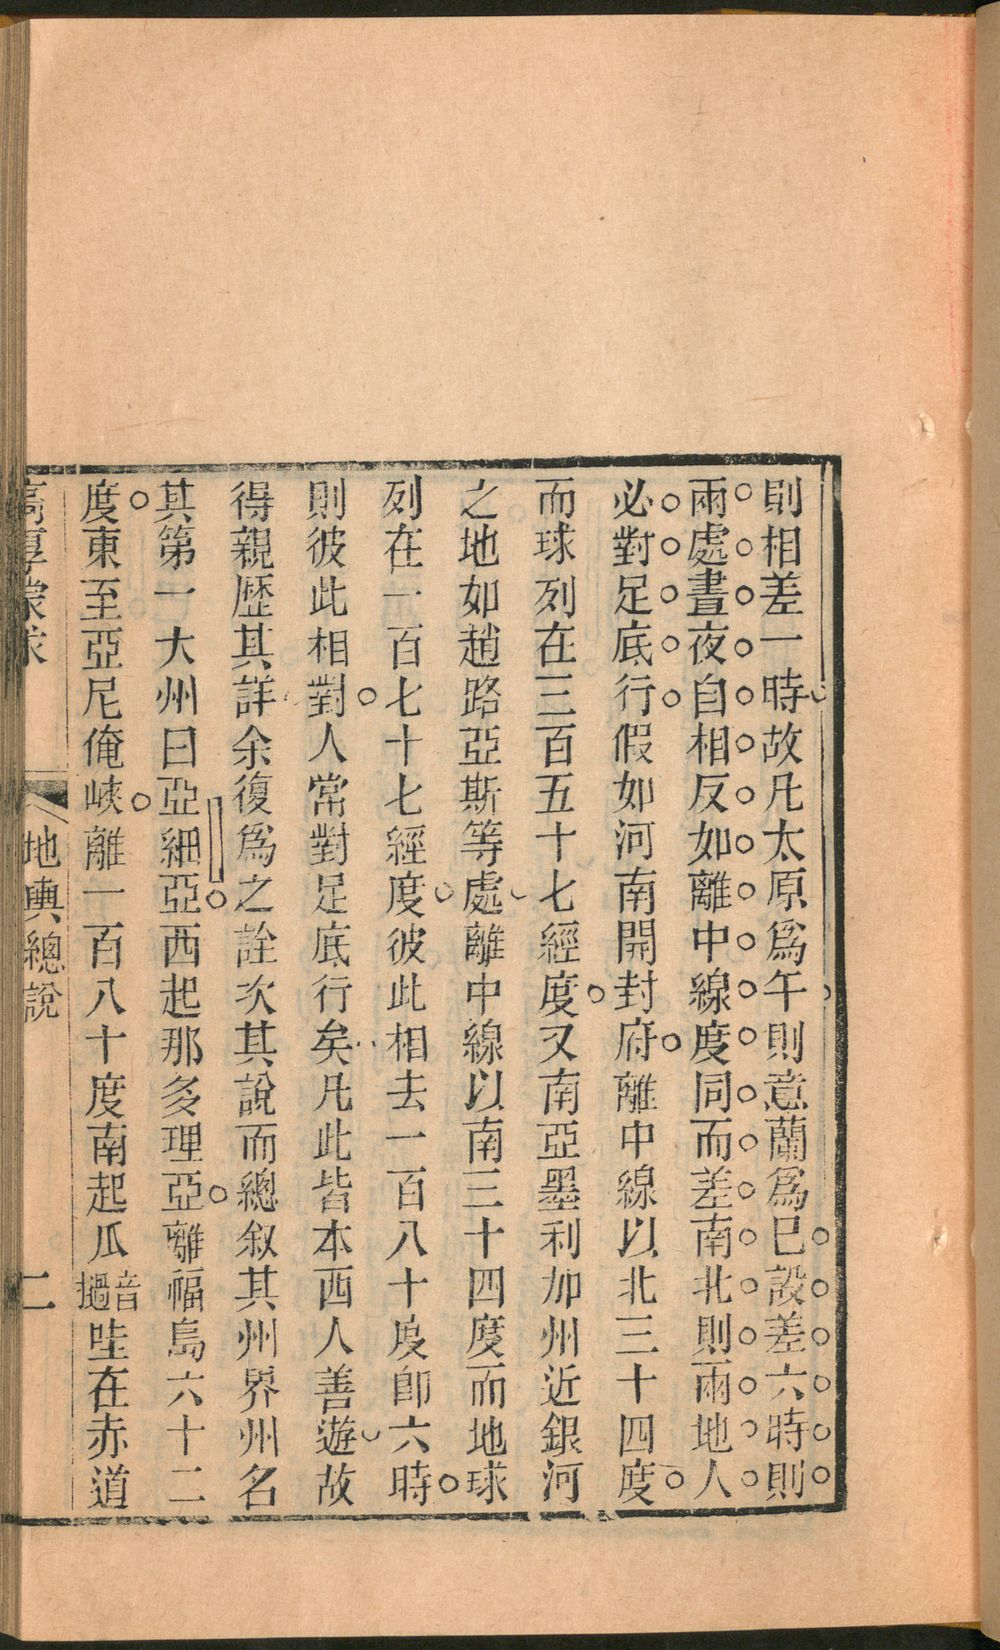 則相差一時故凡太原爲午則意蘭爲巳設差六時則
兩處晝夜自相反如離中線度同而差南北則兩地人
必對足底行假如河南開封府離中線以北三十四度
而球列在三百五十七經度又南亞墨利加州近銀河
之地如趙路亞斯等處離中線以南三十四度而地球
列在一百七十七經度彼此相去一百八十度卽六時
則彼此相對人常對足底行矣凡此皆本西人善遊故
得親歷其詳余復爲之詮次其說而總叙其州界州名
其第一大州曰亞細亞西起那多理亞離福島六十二
度東至亞尼俺峽離一百八十度南起瓜音撾哇在赤道
高厚蒙求 地輿總說 二